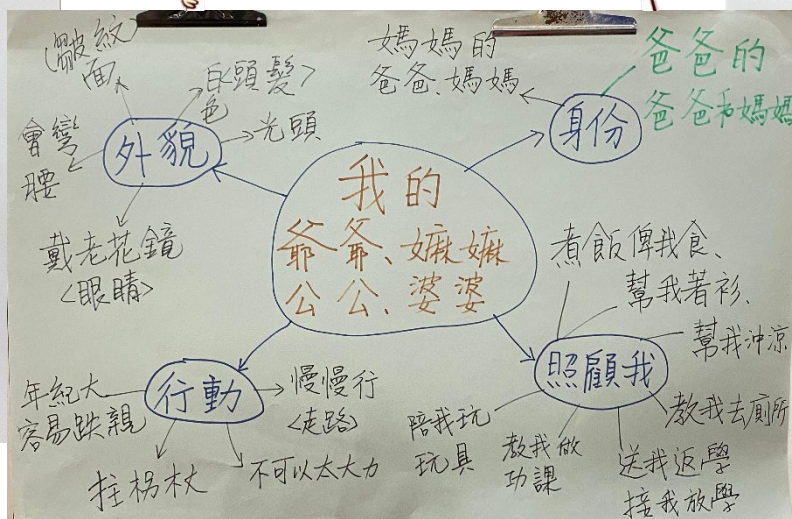 我的
爺爺、嫲嫲
公公、婆婆
外貌
(皺紋
面
白頭髮>
色
光頭
會彎
腰
戴老花鏡
<眼睛>
身份
媽媽的
爸爸、媽媽
爸爸的
爸爸和媽媽
行動
年紀大
容易跌親
拄柺杖
不可以太大力
慢慢行
<走路>
照顧我
煮飯俾我食、
幫我著衫、
幫我沖涼
教我去廁所
送我返學
接我放學
教我做
功課
陪我玩
玩具